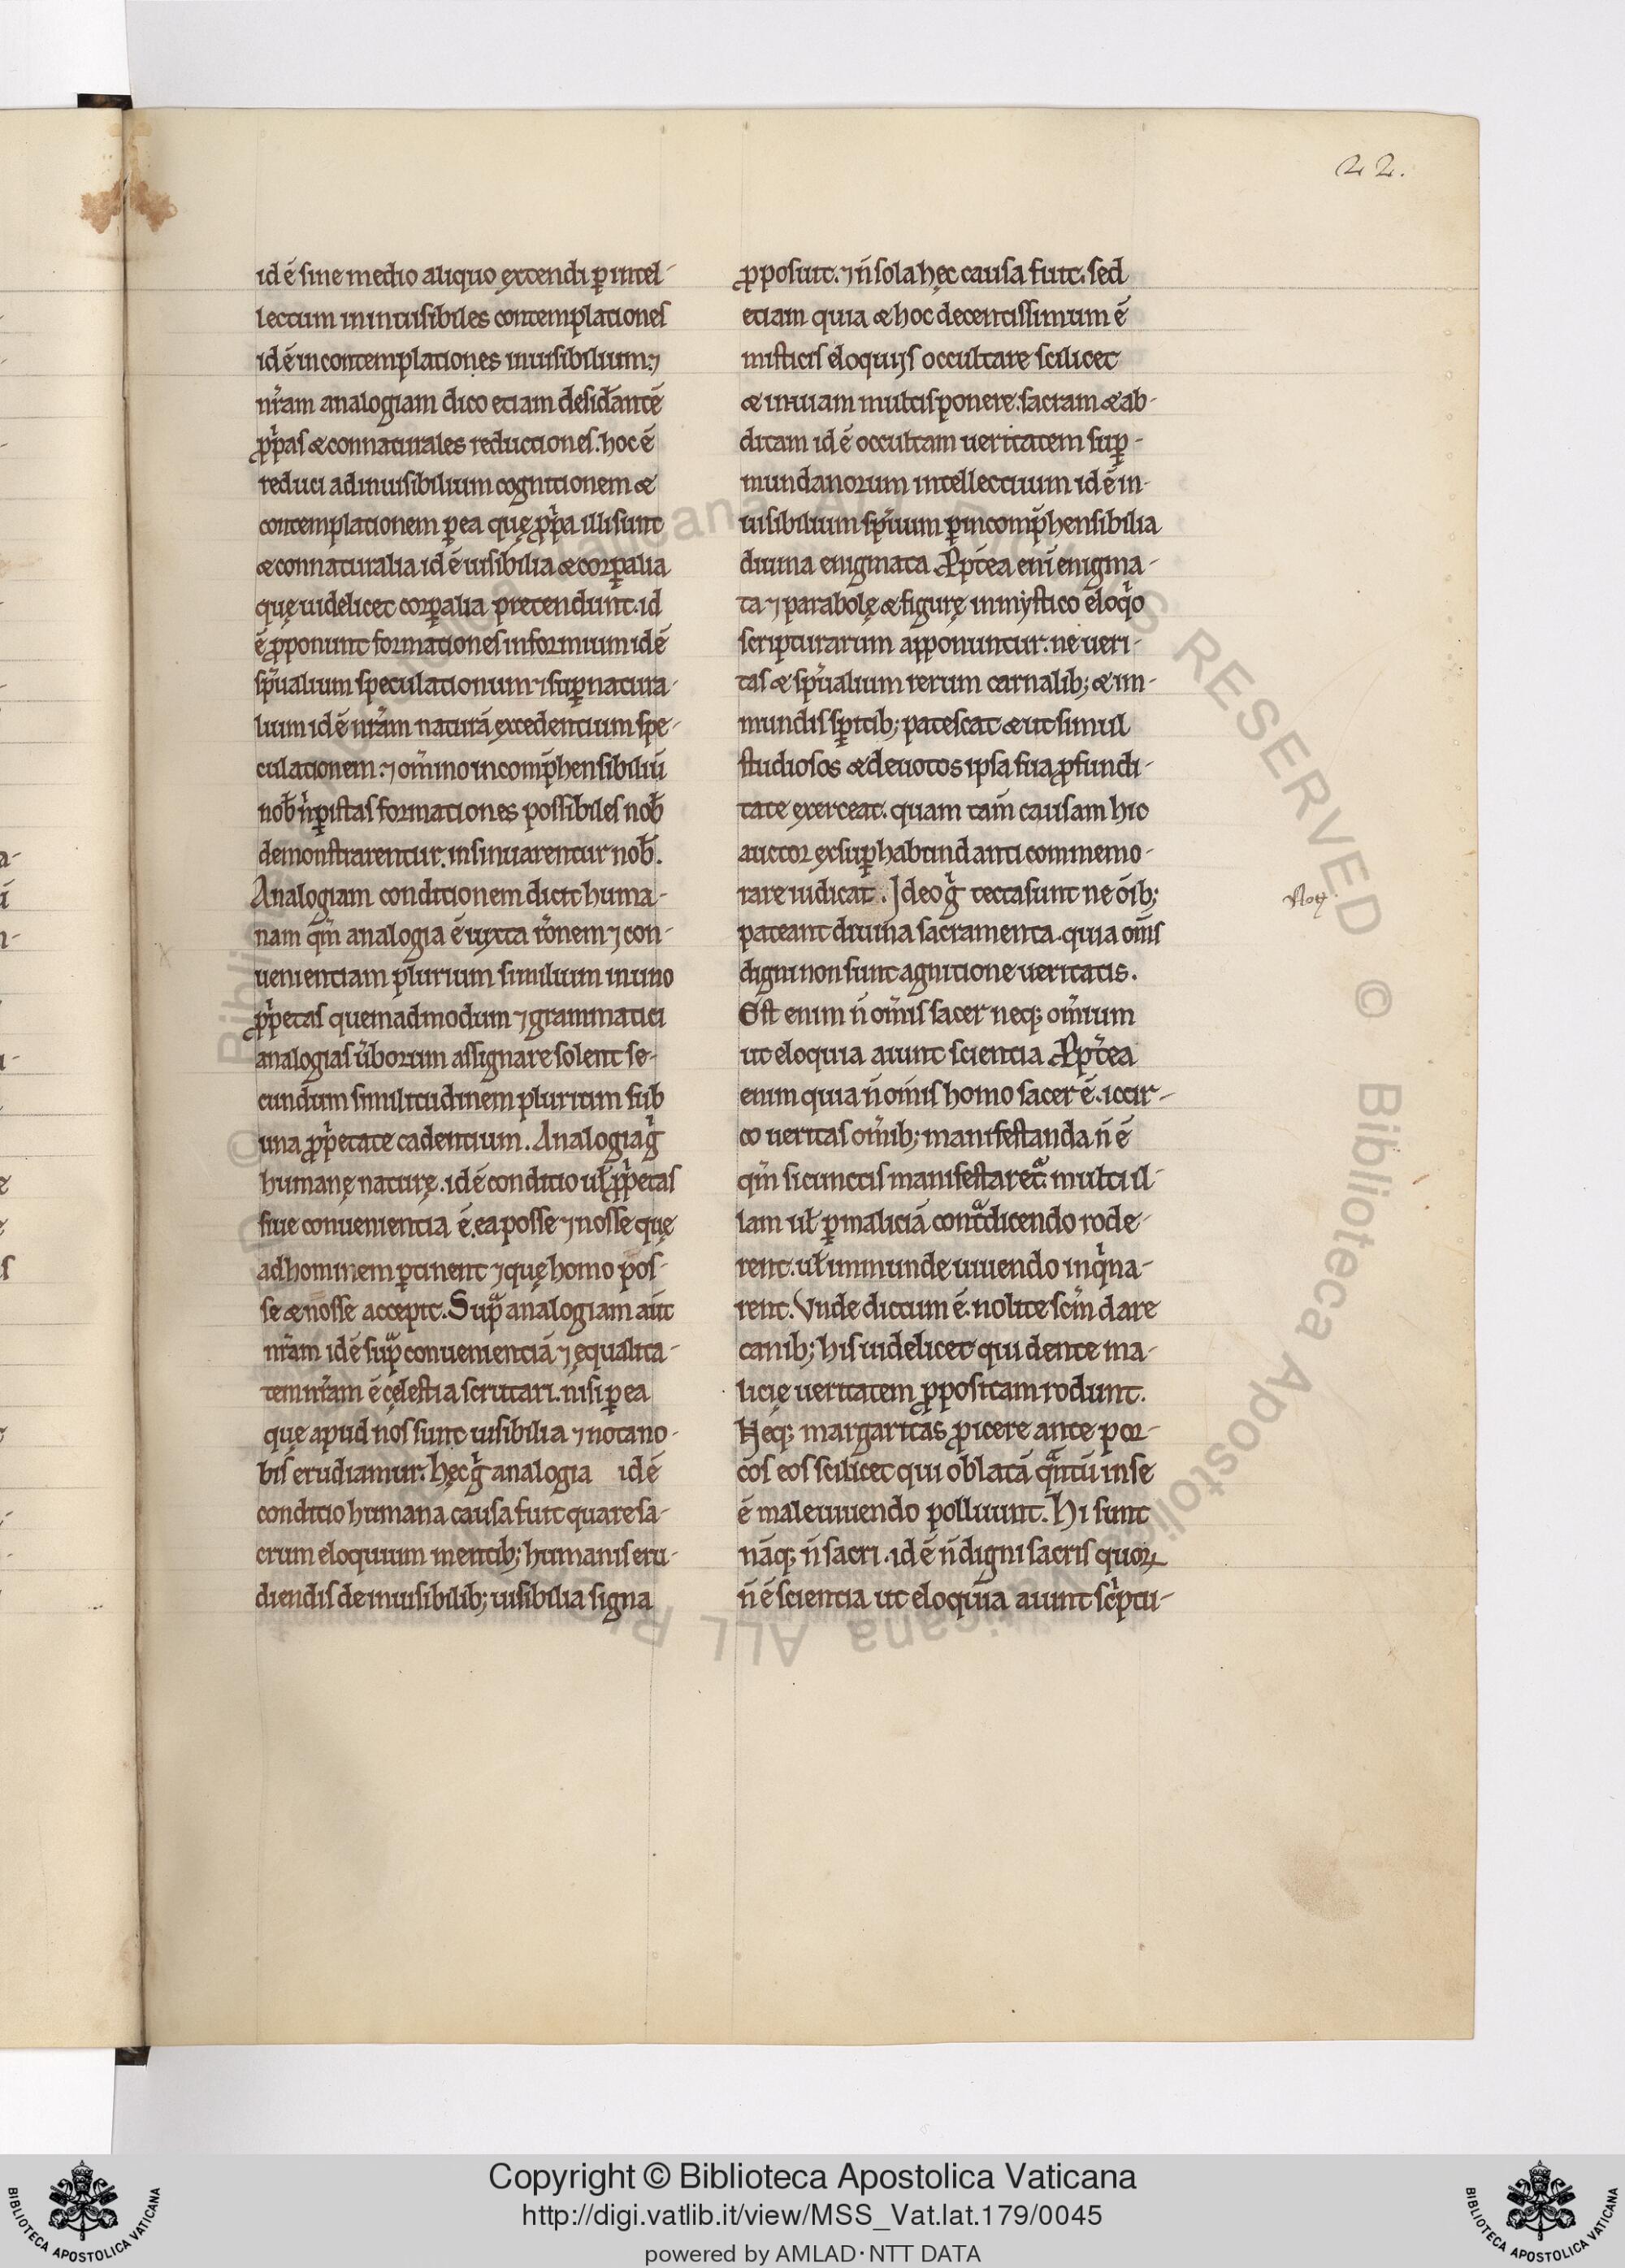 22.
id ē sine medio aliquo extendi ꝑ intel-
lectum in inuisibiles contemplationes
id ē in contemplationes inuisibilium. ⁊
nr̄am analogiam dico etiam desid̄antē
ꝓpͥas & connaturales reductiones. hoc ē
reduci ad inuisibilium cognitionem &
contemplationem ꝑ ea quę ꝓpͥa illi sunt
& connaturalia id ē uisibilia & corꝑalia
quę uidelicet corꝑalia pretendunt. id
ē ꝓponunt formationes informium id ē
sp̄ualium speculationum ⁊ suꝑnatura-
lium id ē nr̄am naturā excedentium spe-
culationem. ⁊ om̄ino incomp̄hensibiliū
nob̄ nͥ ꝑ istas formationes possibiles nob̄
demonstrarentur. insinuarentur nob̄.
Analogiam conditionem dicit huma-
nam qm̄ analogia ē iuxta rōnem ⁊ con-
uenientiam plurium similium in uno
ꝓpͥetas quemadmodum ⁊ grammatici
analogias ūborum assignare solent se-
cundum similitudinem plurium sub
una ꝓpͥetate cadentium. Analogia gͥ
humanę naturę. id ē conditio ul̄ ꝓpͥetas
siue conuenientia ē. ea posse ⁊ nosse quę
ad hominem ꝑtinent ⁊ quę homo pos-
se & nosse accepit. Supͣ analogiam aūt
nr̄am id ē supͣ conuenientiā ⁊ ęqualita-
tem nr̄am ē cęlestia scrutari. nisi ꝑ ea
quę apud nos sunt uisibilia ⁊ nota no-
bis erudiamur. hęc gͥ analogia id ē
conditio humana causa fuit quare sa-
crum eloquium mentib; humanis eru-
diendis de inuisibilib; uisibilia signa
ꝓposuit. ⁊ n̄ sola hęc causa fuit. sed
etiam quia & hoc decentissimum ē
misticis eloquijs occultare scilicet
& inuiam multis ponere. sacram & ab-
ditam id ē occultam ueritatem suꝑ-
mundanorum intellectuum id ē in-
uisibilium sp̄uum ꝑ incomp̄hensibilia
diuina enigmata. Ꝓpt̄ea eni enigma-
ta ⁊ parabolę & figurę in mystico eloqͥo
scripturarum apponuntur. ne ueri-
tas & sp̄ualium rerum carnalib; & im-
mundis sp̄itib; patescat & ut simul
studiosos & deuotos ipsa sua ꝓfundi-
tate exerceat. quam tam̄ causam hic
auctor ex suꝑhabundanti commemo-
rare iudicat. Ideo gͥ tecta sunt ne oīb;
pateant diuina sacramenta. quia om̄s
digni non sunt agnitione ueritatis.
Est enim n̄ om̄is sacer neq; om̄ium
ut eloquia aiunt scientia Ꝓpt̄ea
enim quia n̄ om̄is homo sacer ē. iccir-
co ueritas om̄ib; manifestanda n̄ ē
qm̄ si cunctis manifestaretͣ multi il-
lam ul̄ ꝑ maliciā contͣdicendo rode-
rent. ul̄ immunde uiuendo inqͥna-
rent. Vnde dictum ē. nolite scm̄ dare
canib; his uidelicet qui dente ma-
licię ueritatem ꝓpositam rodunt.
Neq; margaritas ꝓicere ante por-
cos eos scilicet qui oblatā qͣntū in se
ē male uiuendo polluunt. Hi sunt
nāq; n̄ sacri. id ē n̄ digni sacris quoꝝ
n̄ ē scientia ut eloquia aiunt scͥptu-
Copyright © Biblioteca Apostolica Vaticana
http://digi.vatlib.it/view/MSS_Vat.lat.179/0045
powered by AMLAD·NTT DATA
BIBLIOTECA APOSTOLICA VATICANA
BIBLIOTECA APOSTOLICA VATICANA